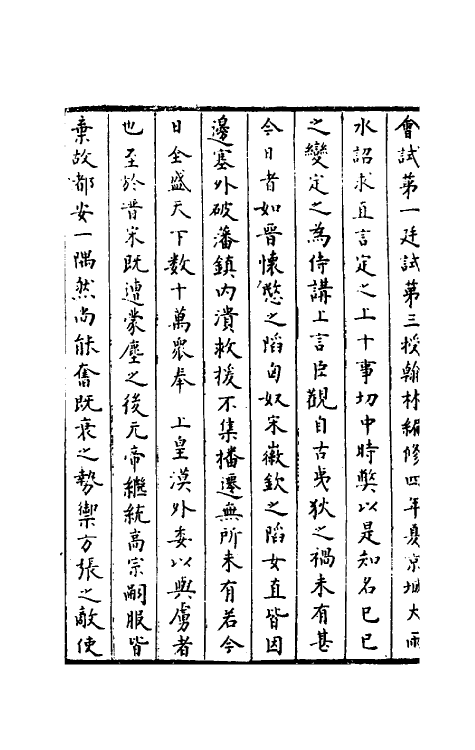 會試第一廷試第三授翰林編修四年夏京城大雨
水詔求直言定之上十事切中時弊以是知名已已
之變定之為侍講上言臣觀自古夷狄之禍未有甚
今日者如晉懷愍之陷匈奴宋徽欽之陷女直皆因
邊塞外破藩鎮內潰救援不集播遷無所未有若今
日全盛天下數十萬衆奉　上皇漠外委以與虜者
也至於晉宋既遭蒙塵之後元帝繼統高宗嗣服皆
棄故都安一隅然尚能奮既衰之勢禦方張之敵使